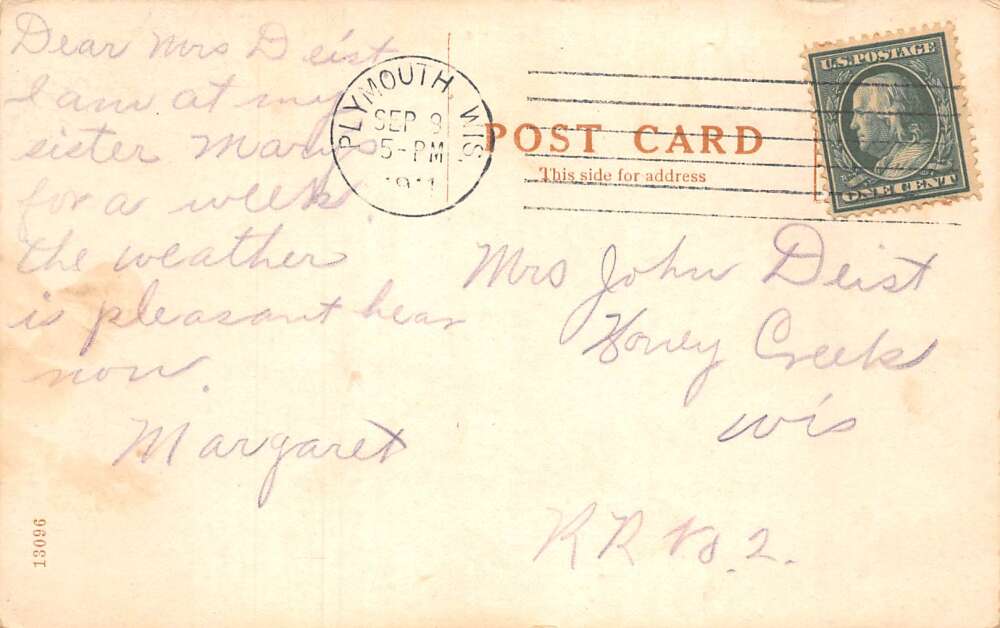 Dear Mrs Deist
I am at my
sister Marys
for a week.
the weather
is pleasant hear
now.
Margaret
13096
PLYMOUTH, WIS.
SEP 9
5-PM
1911
POST CARD
This side for address
U.S. POSTAGE
ONE CENT
Mrs John Deist
Honey Creek
Wis
RR No. 2.